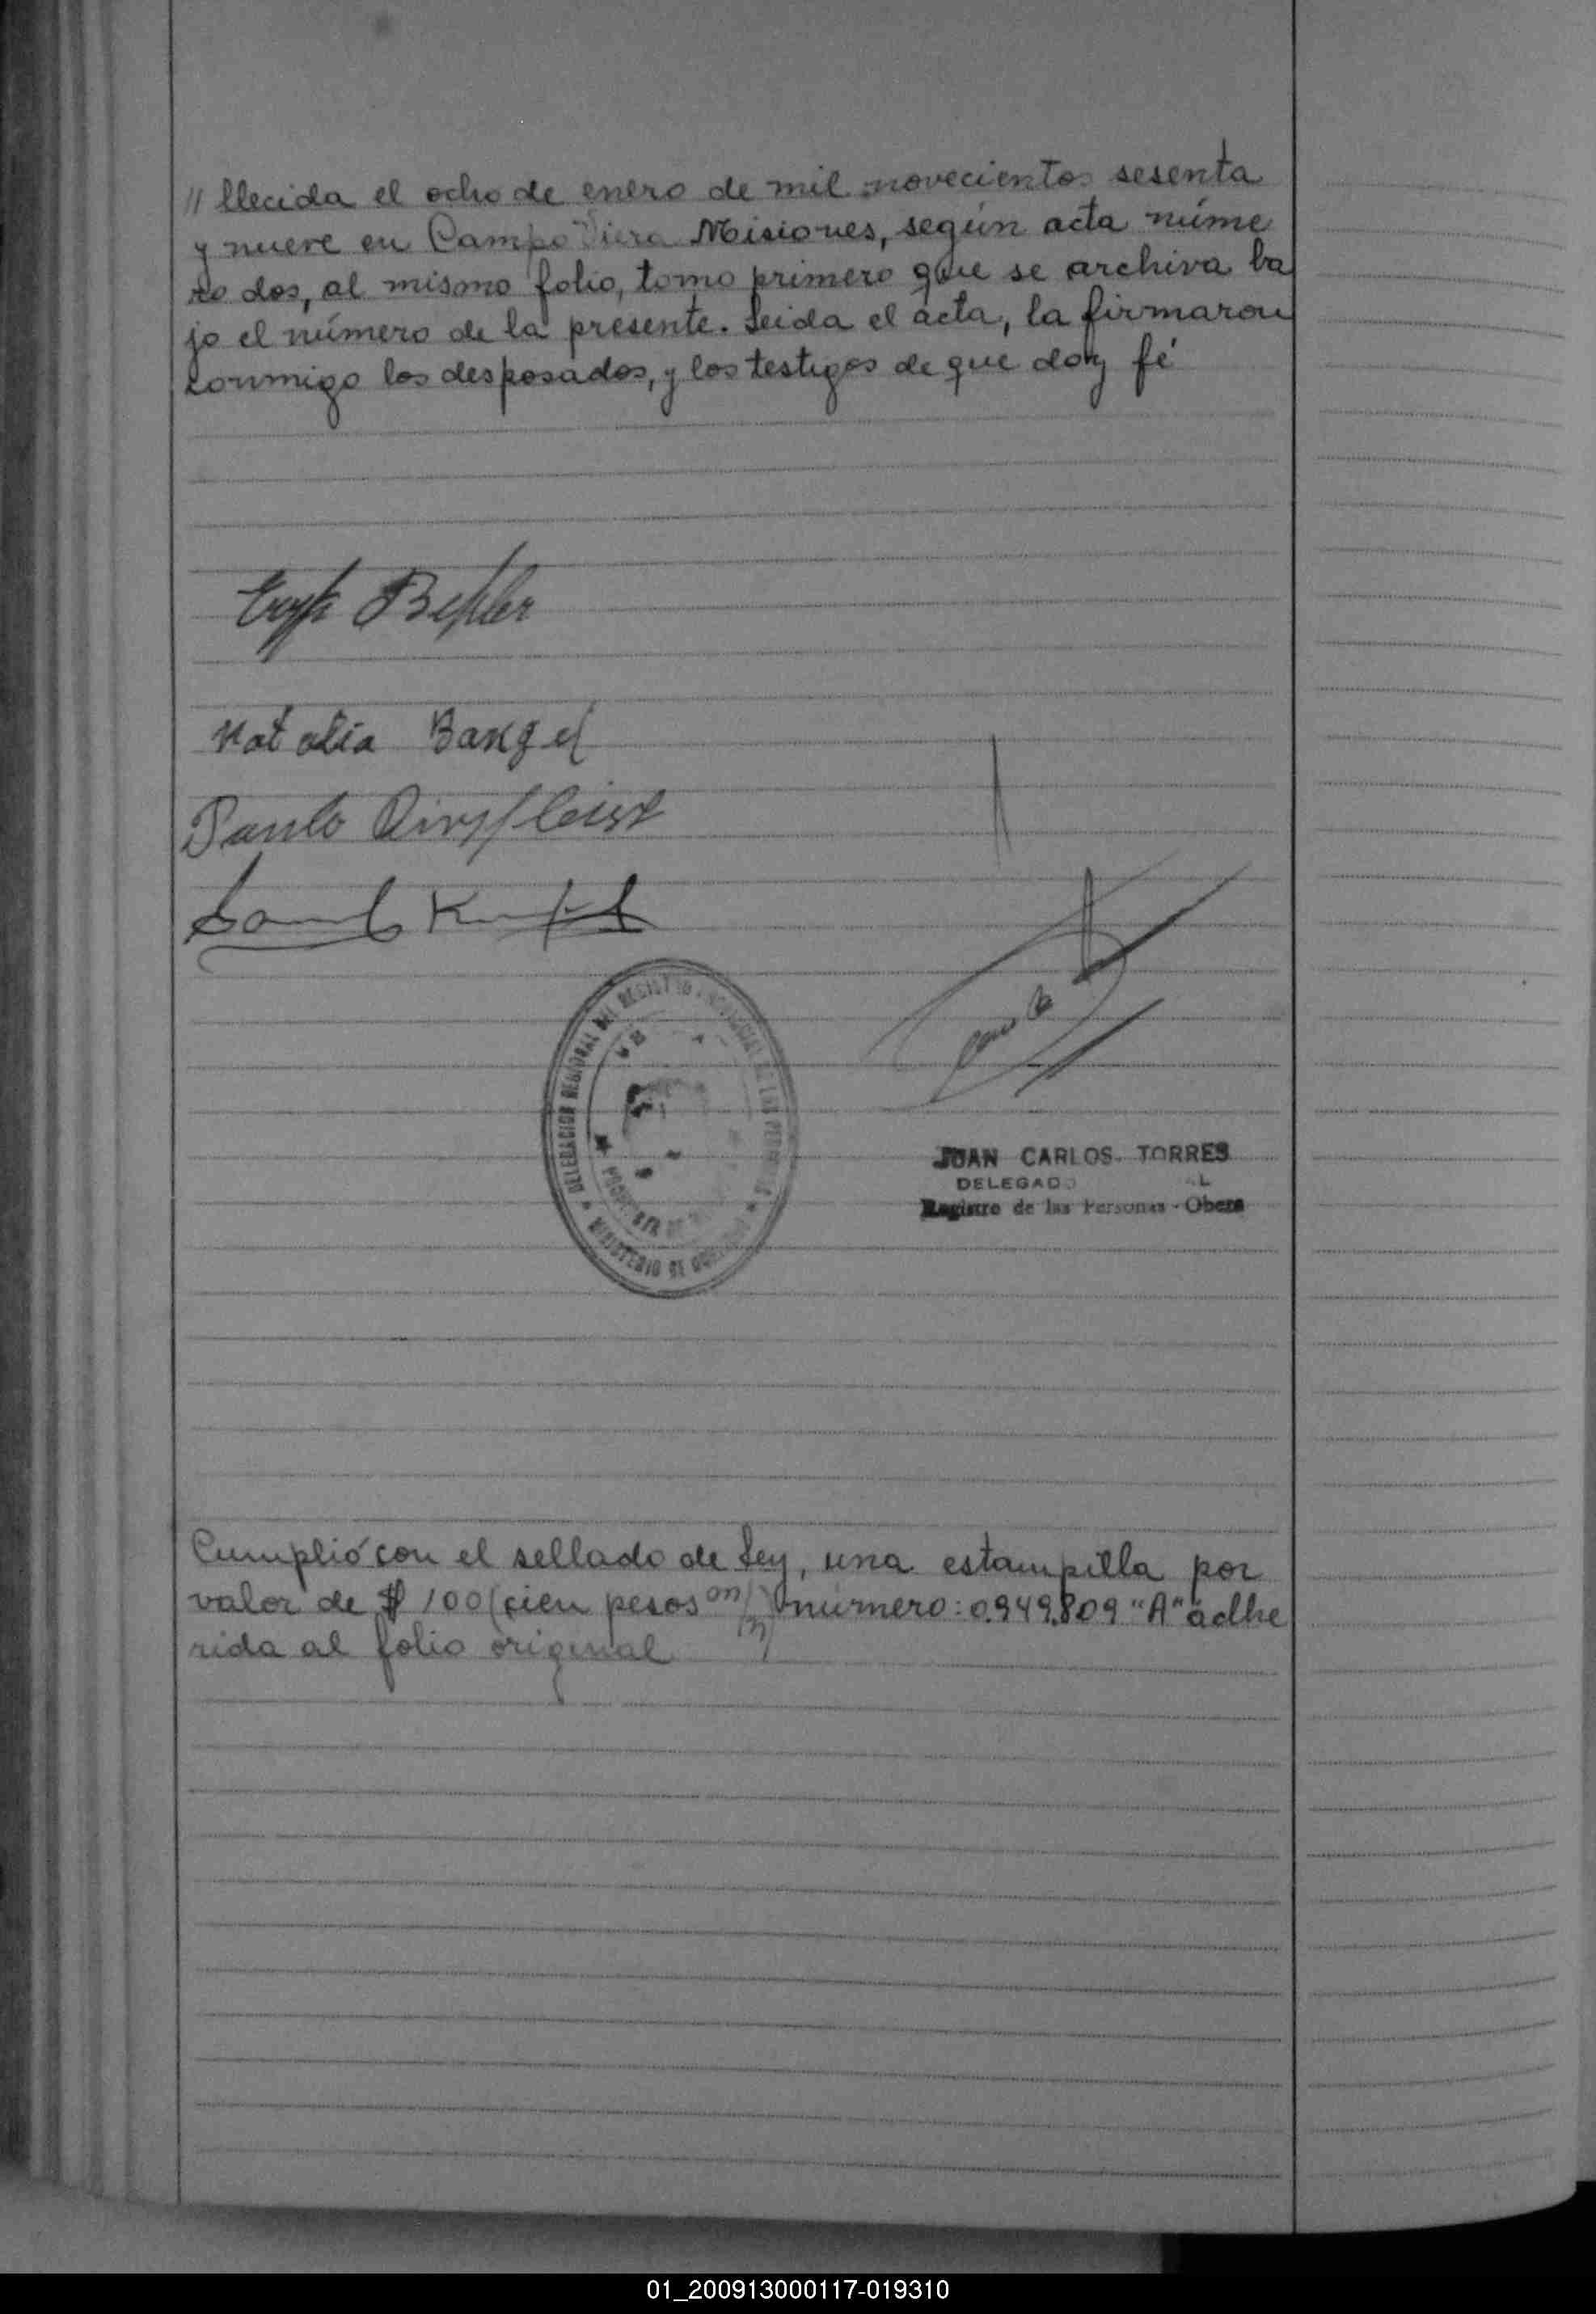 // llecida el ocho de enero de mil novecientos sesenta
y nueve en Campo Viera Misiones, según acta núme
ro dos, al mismo folio, tomo primero que se archiva ba
jo el número de la presente. Leida el acta, la firmaron
conmigo los desposados, y los testigos de que doy fé
Natalia
Paulo
DELEGACION REGIONAL DEL REGISTRO PROVINCIAL DE LAS PERSONAS
MINISTERIO DE GOBIERNO
JUAN CARLOS TORRES
DELEGADO
Registro de las Personas - Obera
Cumplió con el sellado de Ley, una estampilla por
valor de $ 100 (cien pesos m/n) número: 0.949.809 "A" adhe
rida al folio original
01_200913000117-019310